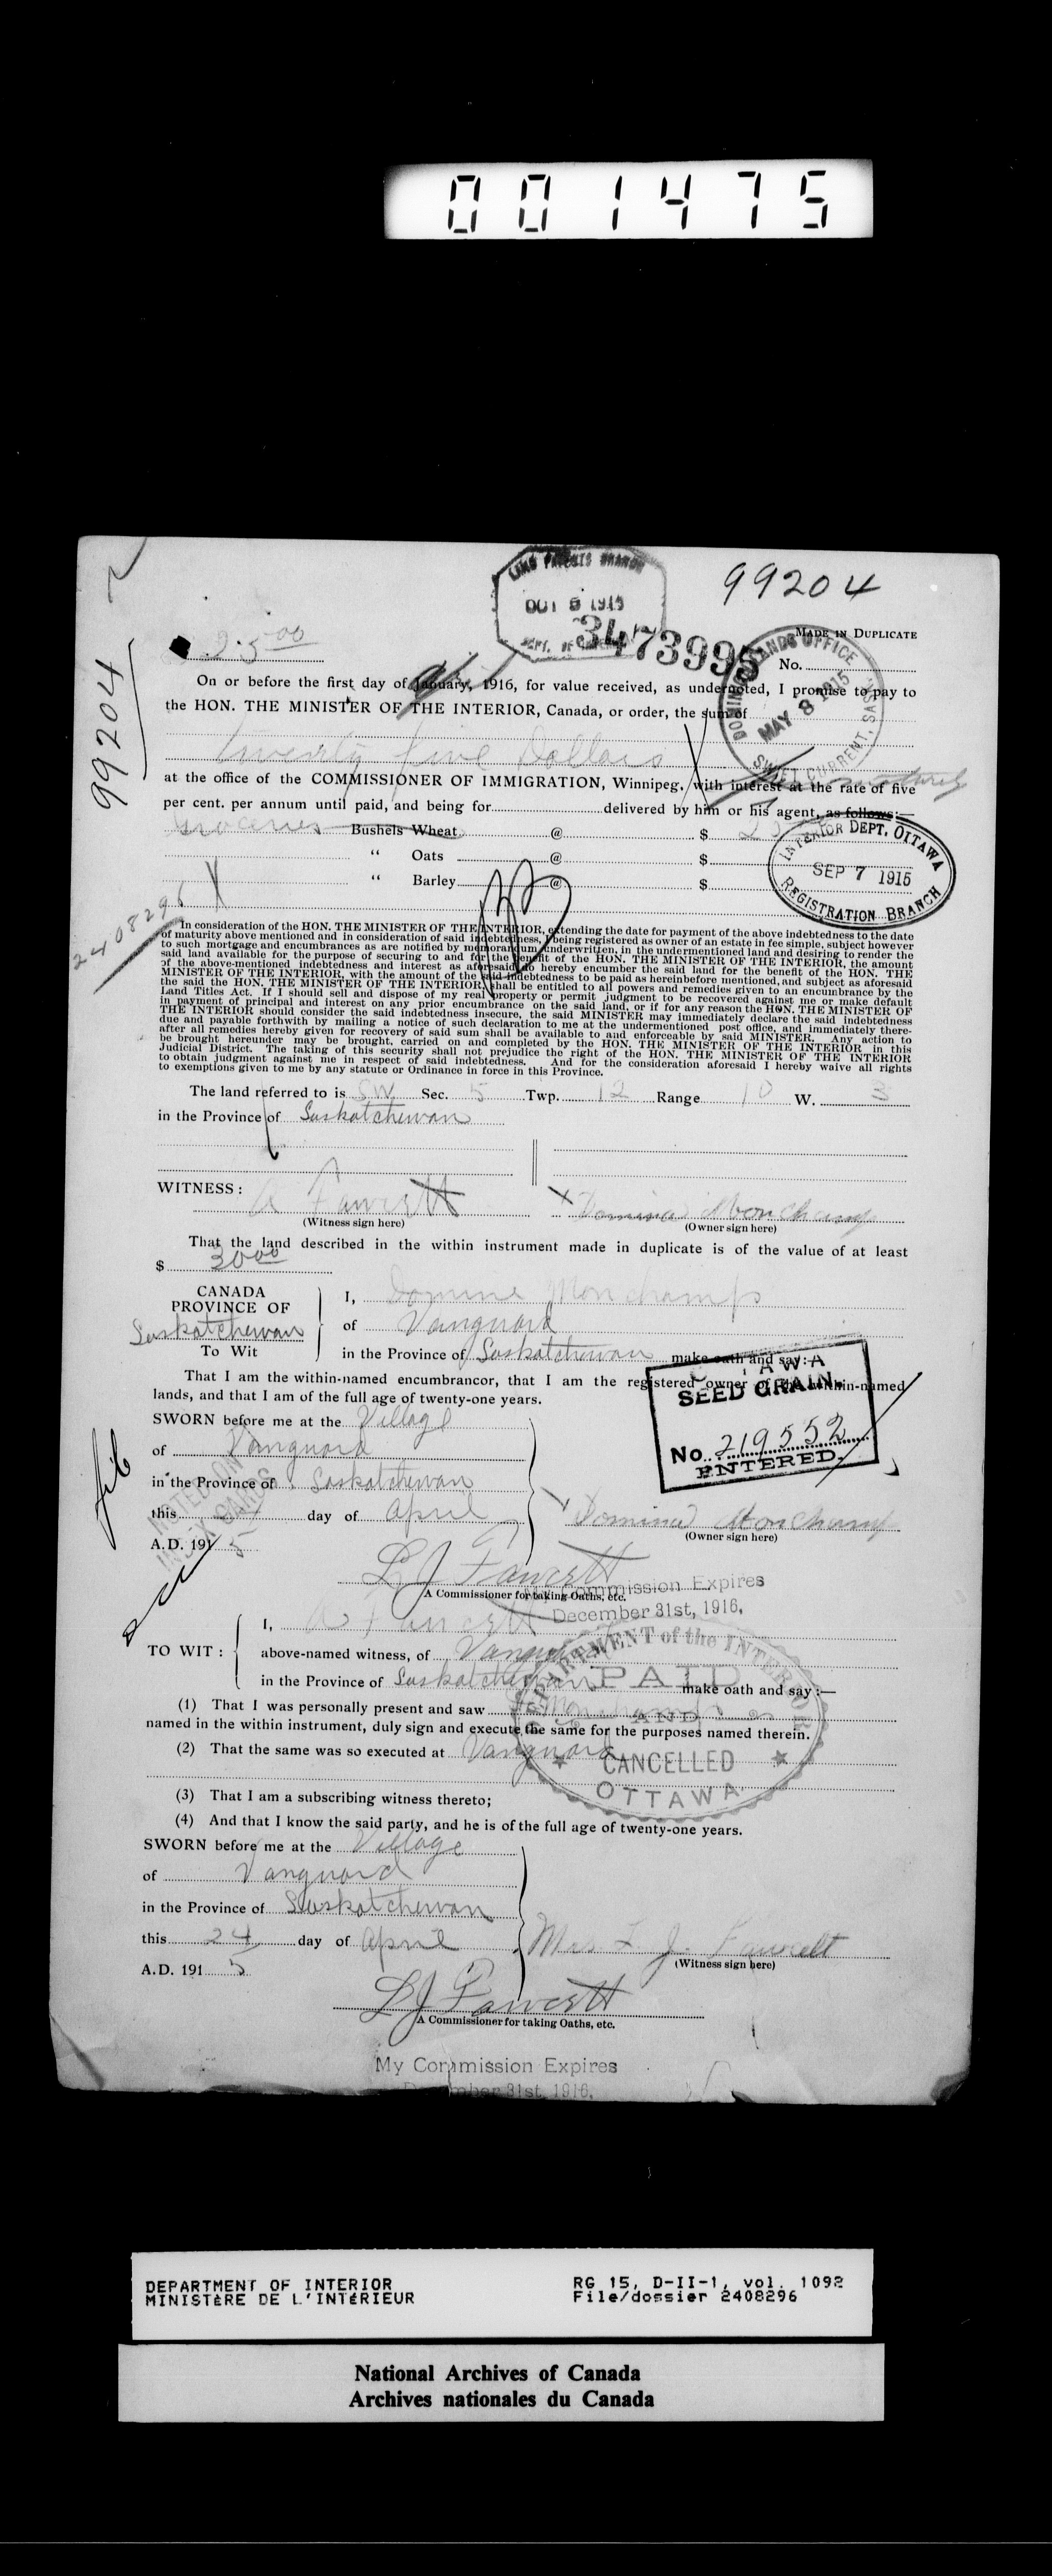 001475
99204
LAND PATENTS BRANCH
OCT 5 1915
3473995
MADE IN DUPLICATE
25 00
No.
DOMINION LANDS OFFICE
MAY 8 1915
SWIFT CURRENT, SASK.
99204
On or before the first day of January, 1916, for value received, as undernoted, I promise to pay to
the HON. THE MINISTER OF THE INTERIOR, Canada, or order, the sum of
Twenty five Dollars
at the office of the COMMISSIONER OF IMMIGRATION, Winnipeg, with interest at the rate of five
per cent. per annum until paid, and being for delivered by him or his agent, as follows:—
Groceries Bushels Wheat @ $ 25
“ Oats @ $
“ Barley @ $
INTERIOR DEPT. OTTAWA
SEP 7 1915
REGISTRATION BRANCH
2408296
In consideration of the HON. THE MINISTER OF THE INTERIOR, extending the date for payment of the above indebtedness to the date
of maturity above mentioned and in consideration of said indebtedness, I being registered as owner of an estate in fee simple, subject however
to such mortgage and encumbrances as are notified by memorandum underwritten, in the undermentioned land and desiring to render the
said land available for the purpose of securing to and for the benefit of the HON. THE MINISTER OF THE INTERIOR, the amount
of the above-mentioned indebtedness and interest as aforesaid do hereby encumber the said land for the benefit of the HON. THE
MINISTER OF THE INTERIOR, with the amount of the said indebtedness to be paid as hereinbefore mentioned, and subject as aforesaid
the said the HON. THE MINISTER OF THE INTERIOR, shall be entitled to all powers and remedies given to an encumbrance by the
Land Titles Act. If I should sell and dispose of my real property or permit judgment to be recovered against me or make default
in payment of principal and interest on any prior encumbrance on the said land, or if for any reason the HON. THE MINISTER OF
THE INTERIOR should consider the said indebtedness insecure, the said MINISTER may immediately declare the said indebtedness
due and payable forthwith by mailing a notice of such declaration to me at the undermentioned post office, and immediately there-
after all remedies hereby given for recovery of said sum shall be available to and enforceable by said MINISTER. Any action to
be brought hereunder may be brought, carried on and completed by the HON. THE MINISTER OF THE INTERIOR in this
Judicial District. The taking of this security shall not prejudice the right of the HON. THE MINISTER OF THE INTERIOR
to obtain judgment against me in respect of said indebtedness. And for the consideration aforesaid I hereby waive all rights
to exemptions given to me by any statute or Ordinance in force in this Province.
The land referred to is SW Sec. 5 Twp. 12 Range 10 W. 3
in the Province of Saskatchewan
WITNESS:
A Fawcett X Domina Monchamp
(Witness sign here) (Owner sign here)
That the land described in the within instrument made in duplicate is of the value of at least
$ 3000
CANADA
PROVINCE OF
Saskatchewan
To Wit
I, Domine Monchamps
of Vanguard
in the Province of Saskatchewan make oath and say:—
That I am the within-named encumbrancor, that I am the registered owner of the within-named
lands, and that I am of the full age of twenty-one years.
OTTAWA
SEED GRAIN.
No. 219552
ENTERED.
SWORN before me at the Village
of Vanguard
in the Province of Saskatchewan
this day of April
A.D. 191 5
NOTED ON
INDEX CARDS
Domina Monchamp
(Owner sign here)
L J Fawcett
A Commissioner for taking Oaths, etc.
My Commission Expires
December 31st, 1916.
TO WIT:
I, A Fawcett
above-named witness, of Vanguard
in the Province of Saskatchewan make oath and say:—
(1) That I was personally present and saw
named in the within instrument, duly sign and execute the same for the purposes named therein.
(2) That the same was so executed at Vanguard
DEPARTMENT of the INTERIOR
PAID
AND
CANCELLED
OTTAWA
(3) That I am a subscribing witness thereto;
(4) And that I know the said party, and he is of the full age of twenty-one years.
SWORN before me at the Village
of Vanguard
in the Province of Saskatchewan
this 24 day of April
A.D. 191 5
Mrs L J. Fawcett
(Witness sign here)
L J Fawcett
A Commissioner for taking Oaths, etc.
My Commission Expires
December 31st, 1916.
DEPARTMENT OF INTERIOR
MINISTÈRE DE L'INTÉRIEUR
RG 15, D-II-1, vol. 1092
File/dossier 2408296
National Archives of Canada
Archives nationales du Canada